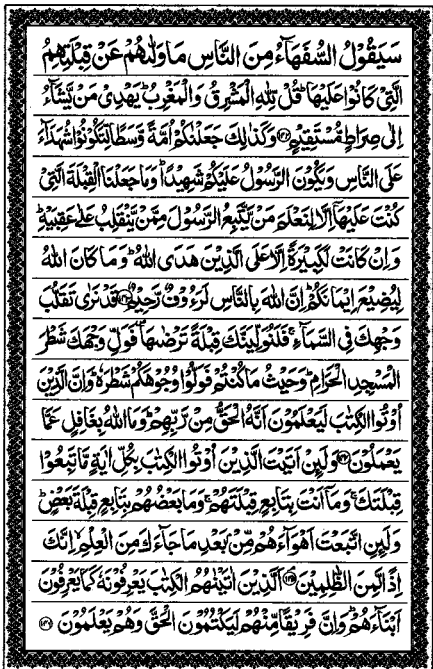 سَيَقُوْلُ السُّفَهَآءُ مِنَ النَّاسِ مَا وَلّٰىهُمْ عَنْ قِبْلَتِهِمُ
الَّتِيْ كَانُوْا عَلَيْهَا ؕ قُلْ لِّلّٰهِ الْمَشْرِقُ وَالْمَغْرِبُ ؕ يَهْدِيْ مَنْ يَّشَآءُ
اِلٰى صِرَاطٍ مُّسْتَقِيْمٍ ﴿۱۴۲﴾ وَكَذٰلِكَ جَعَلْنٰكُمْ اُمَّةً وَّسَطًا لِّتَكُوْنُوْا شُهَدَآءَ
عَلَى النَّاسِ وَيَكُوْنَ الرَّسُوْلُ عَلَيْكُمْ شَهِيْدًا ؕ وَمَا جَعَلْنَا الْقِبْلَةَ الَّتِيْ
كُنْتَ عَلَيْهَاۤ اِلَّا لِنَعْلَمَ مَنْ يَّتَّبِعُ الرَّسُوْلَ مِمَّنْ يَّنْقَلِبُ عَلٰى عَقِبَيْهِ ؕ
وَاِنْ كَانَتْ لَكَبِيْرَةً اِلَّا عَلَى الَّذِيْنَ هَدَى اللّٰهُ ؕ وَمَا كَانَ اللّٰهُ
لِيُضِيْعَ اِيْمَانَكُمْ ؕ اِنَّ اللّٰهَ بِالنَّاسِ لَرَءُوْفٌ رَّحِيْمٌ ﴿۱۴۳﴾ قَدْ نَرٰى تَقَلُّبَ
وَجْهِكَ فِي السَّمَآءِ ۚ فَلَنُوَلِّيَنَّكَ قِبْلَةً تَرْضٰىهَا ۪ فَوَلِّ وَجْهَكَ شَطْرَ
الْمَسْجِدِ الْحَرَامِ ؕ وَحَيْثُ مَا كُنْتُمْ فَوَلُّوْا وُجُوْهَكُمْ شَطْرَهٗ ؕ وَاِنَّ الَّذِيْنَ
اُوْتُوا الْكِتٰبَ لَيَعْلَمُوْنَ اَنَّهُ الْحَقُّ مِنْ رَّبِّهِمْ ؕ وَمَا اللّٰهُ بِغَافِلٍ عَمَّا
يَعْمَلُوْنَ ﴿۱۴۴﴾ وَلَئِنْ اَتَيْتَ الَّذِيْنَ اُوْتُوا الْكِتٰبَ بِكُلِّ اٰيَةٍ مَّا تَبِعُوْا
قِبْلَتَكَ ۚ وَمَاۤ اَنْتَ بِتَابِعٍ قِبْلَتَهُمْ ۚ وَمَا بَعْضُهُمْ بِتَابِعٍ قِبْلَةَ بَعْضٍ ؕ
وَلَئِنِ اتَّبَعْتَ اَهْوَآءَهُمْ مِّنْۢ بَعْدِ مَا جَآءَكَ مِنَ الْعِلْمِ ۙ اِنَّكَ
اِذًا لَّمِنَ الظّٰلِمِيْنَ ﴿۱۴۵﴾ اَلَّذِيْنَ اٰتَيْنٰهُمُ الْكِتٰبَ يَعْرِفُوْنَهٗ كَمَا يَعْرِفُوْنَ
اَبْنَآءَهُمْ ؕ وَاِنَّ فَرِيْقًا مِّنْهُمْ لَيَكْتُمُوْنَ الْحَقَّ وَهُمْ يَعْلَمُوْنَ ﴿۱۴۶﴾